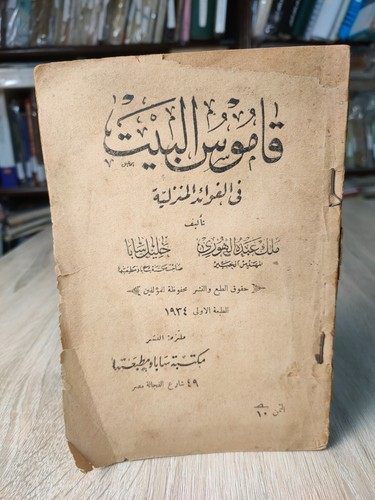 قاموس البيت
في الفوائد المنزلية
تأليف
ملك عبد الهوري خليل سابا
حقوق الطبع والنشر محفوظة للمؤلفين
الطبعة الاولى ١٩٣٤
ملتزمة النشر
مكتبة سابا ومطبعتها
٤٩ شارع الفجالة مصر
الثمن ١٠